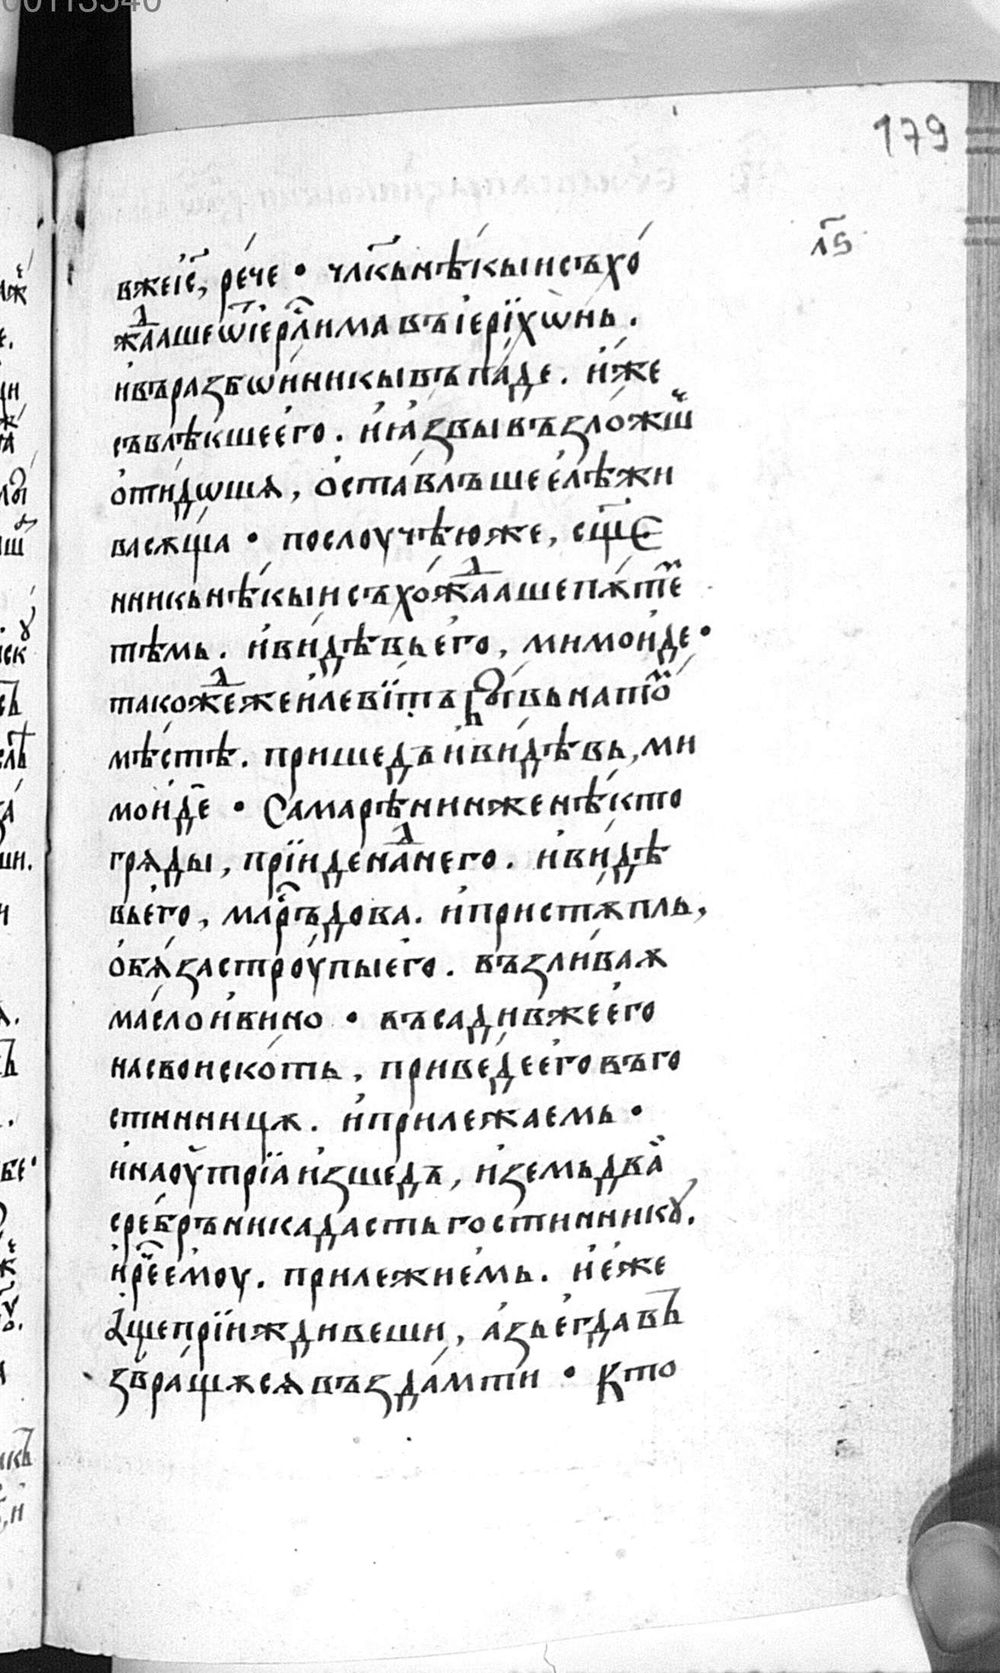 00113540
179
л҃ѕ
вжеіс҃, рече • чл҃кьнѣкыисъхо
ждаашеѿіерл҃имавъіерїхѡнь.
ивъразбѡиникывъпаде. иже
съвлѣкшеего. иꙗзвывъзложш
отидѡшѧ, оставлъшеелѣжи
васѫща • послоучѣюже, сщ҃е
нникьнѣкыисъхождаашепѫте
тѣмь. ивидѣвьего, мимоиде •
такожежеилевїтъбывьнатѡ
мѣстѣ. пришедъивидѣвь, ми
моиде • Самарѣнинженѣкто
грѧды, прїиденаднего. ивидѣ
вьего, млр҃ъдова. ипристѫпль,
обѧзастроупыего. възливаѫ
маслоивино • въсадивжеего
насвоискоть, приведеегоевъго
стинницѫ. иприлежаемь •
инаоутрїаизшедъ, иземьдва
сребрьникадастьгостиннику.
ирееемоу. прилежиемь. иеже
Ащепрїиждивеши, азьегдавъ
звращѫсѧвъздамти • Кто